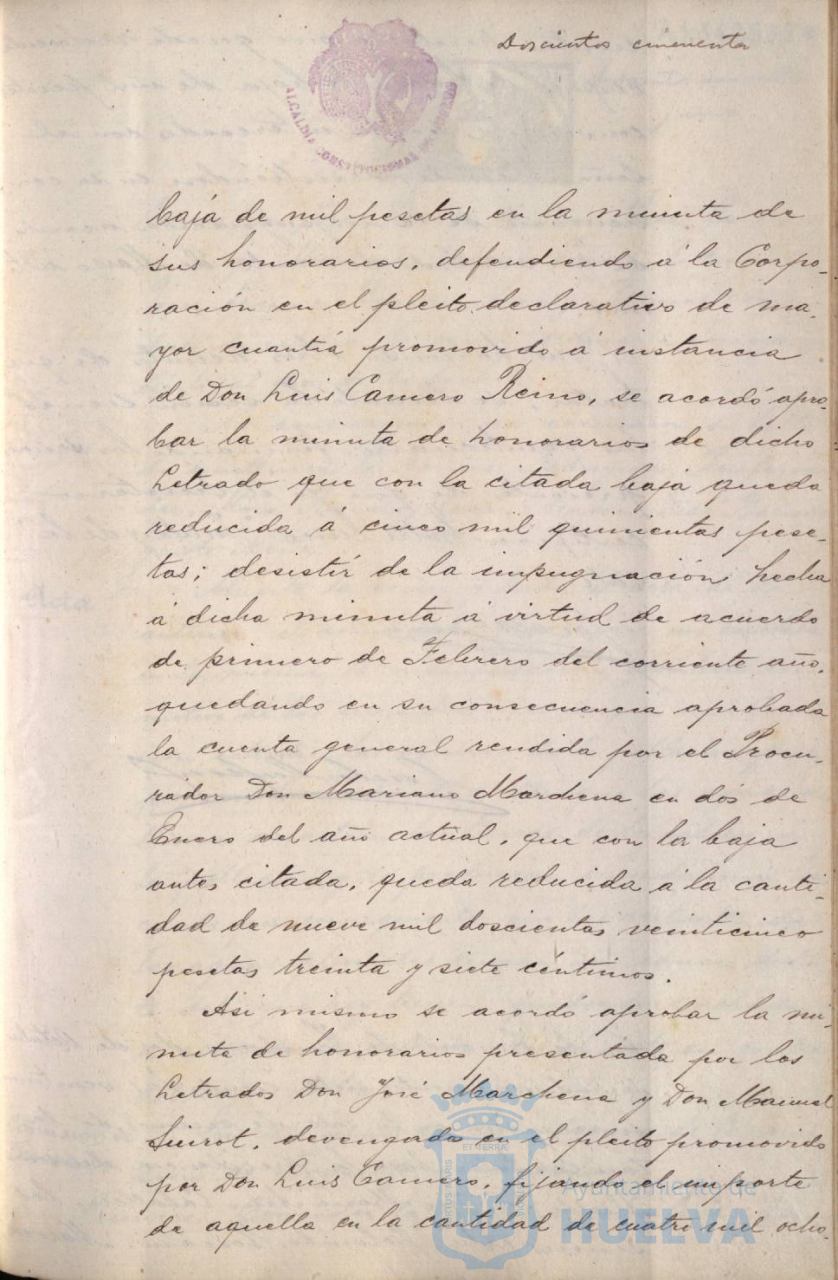 Doscientos cincuenta
ALCALDIA CONSTITUCIONAL DE
baja de mil pesetas en la minuta de
sus honorarios, defendiendo á la Corpo-
ración en el pleito declarativo de ma-
yor cuantía promovido á instancia
de Don Luis Camero Reino, se acordó apro-
bar la minuta de honorarios de dicho
Letrado que con la citada baja queda
reducida á cinco mil quinientas pese-
tas; desistir de la impugnación hecha
á dicha minuta á virtud de acuerdo
de primero de Febrero del corriente año,
quedando en su consecuencia aprobada
la cuenta general rendida por el Procu-
rador Don Mariano Marchena en dos de
Enero del año actual, que con la baja
antes citada, queda reducida á la canti-
dad de nueve mil doscientas veinticinco
pesetas treinta y siete céntimos.
Asi mismo se acordó aprobar la mi-
nuta de honorarios presentada por los
Letrados Don José Marchena y Don Manuel
Siurot, devengada en el pleito promovido
por Don Luis Camero, fijando el importe
de aquella en la cantidad de cuatro mil ocho-
Ayuntamiento de
HUELVA